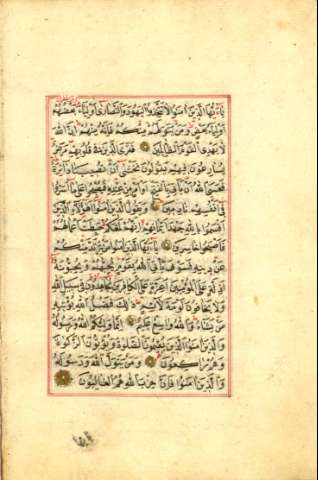 يَاءَيُّهَا الَّذِينَ اٰمَنُوا لَا تَتَّخِذُوا الْيَهُودَ وَالنَّصَارٰى اَوْلِيَاءَ بَعْضُهُمْ
اَوْلِيَاءُ بَعْضٍ وَمَنْ يَتَوَلَّهُمْ مِنْكُمْ فَاِنَّهُ مِنْهُمْ اِنَّ اللّٰهَ
لَا يَهْدِى الْقَوْمَ الظَّالِمِينَ فَتَرَى الَّذِينَ فِى قُلُوبِهِمْ مَرَضٌ
يُسَارِعُونَ فِيهِمْ يَقُولُونَ نَخْشٰى اَنْ تُصِيبَنَا دَائِرَةٌ
فَعَسَى اللّٰهُ اَنْ يَأْتِىَ بِالْفَتْحِ اَوْ اَمْرٍ مِنْ عِنْدِهِ فَيُصْبِحُوا عَلٰى مَا اَسَرُّوا
فِى اَنْفُسِهِمْ نَادِمِينَ وَيَقُولُ الَّذِينَ اٰمَنُوا اَهٰؤُلَاءِ الَّذِينَ
اَقْسَمُوا بِاللّٰهِ جَهْدَ اَيْمَانِهِمْ اِنَّهُمْ لَمَعَكُمْ حَبِطَتْ اَعْمَالُهُمْ
فَاَصْبَحُوا خَاسِرِينَ يَاءَيُّهَا الَّذِينَ اٰمَنُوا مَنْ يَرْتَدَّ مِنْكُمْ
عَنْ دِينِهِ فَسَوْفَ يَأْتِى اللّٰهُ بِقَوْمٍ يُحِبُّهُمْ وَيُحِبُّونَهُ
اَذِلَّةٍ عَلَى الْمُؤْمِنِينَ اَعِزَّةٍ عَلَى الْكَافِرِينَ يُجَاهِدُونَ فِى سَبِيلِ اللّٰهِ
وَلَا يَخَافُونَ لَوْمَةَ لَائِمٍ ذٰلِكَ فَضْلُ اللّٰهِ يُؤْتِيهِ
مَنْ يَشَاءُ وَاللّٰهُ وَاسِعٌ عَلِيمٌ اِنَّمَا وَلِيُّكُمُ اللّٰهُ وَرَسُولُهُ
وَالَّذِينَ اٰمَنُوا الَّذِينَ يُقِيمُونَ الصَّلٰوةَ وَيُؤْتُونَ الزَّكٰوةَ
وَهُمْ رَاكِعُونَ وَمَنْ يَتَوَلَّ اللّٰهَ وَرَسُولَهُ
وَالَّذِينَ اٰمَنُوا فَاِنَّ حِزْبَ اللّٰهِ هُمُ الْغَالِبُونَ